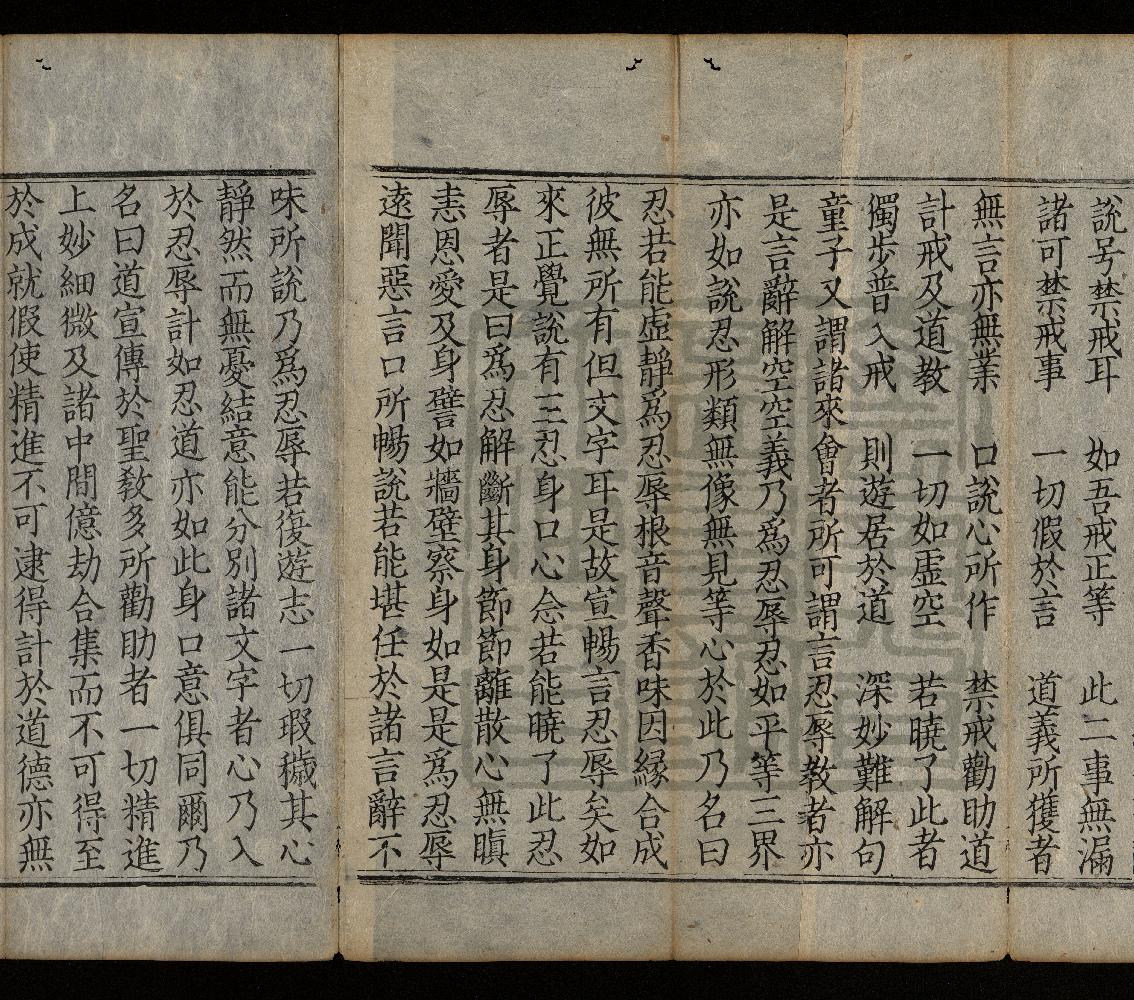 說号禁戒耳　如吾戒正等　此二事無漏
諸可禁戒事　一切假於言　道義所獲者
無言亦無業　口說心所作　禁戒勸助道
計戒及道教　一切如虛空　若曉了此者
獨步普入戒　則遊居於道　深妙難解句
童子又謂諸來會者所可謂言忍辱教者亦
是言辭解空空義乃爲忍辱忍如平等三界
亦如說忍形類無像無見等心於此乃名曰
忍若能虛靜爲忍辱根音聲香味因緣合成
彼無所有但文字耳是故宣暢言忍辱矣如
來正覺說有三忍身口心念若能曉了此忍
辱者是曰爲忍解斷其身節節離散心無瞋
恚恩愛及身譬如牆壁察身如是是爲忍辱
遠聞惡言口所暢說若能堪任於諸言辭不
味所說乃爲忍辱若復遊志一切瑕穢其心
靜然而無憂結意能分別諸文字者心乃入
於忍辱計如忍道亦如此身口意俱同爾乃
名曰道宣傳於聖教多所勸助者一切精進
上妙細微及諸中間億劫合集而不可得至
於成就假使精進不可逮得計於道德亦無